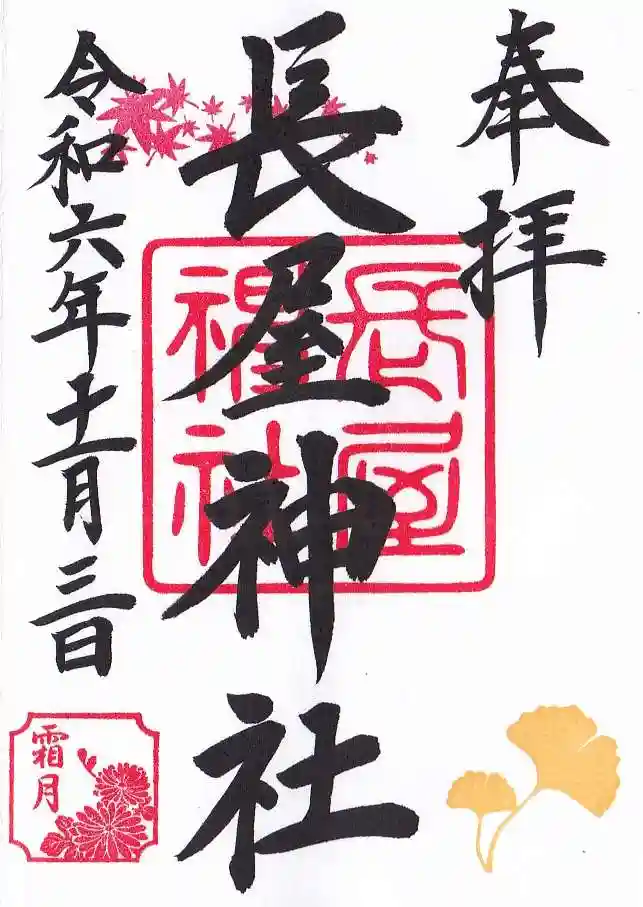 奉拝
長屋神社
長屋神社
令和六年十一月三日
霜月